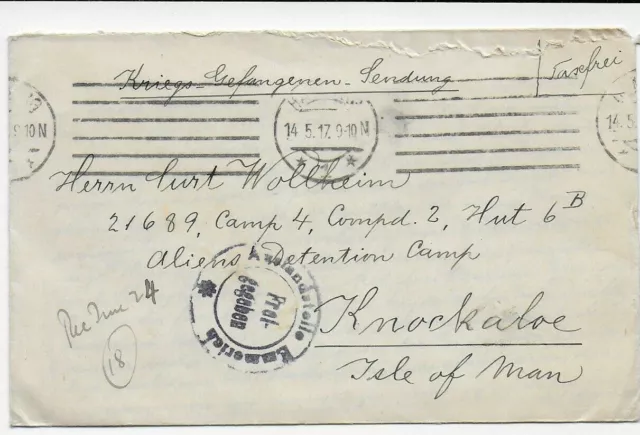 Kriegs-Gefangenen-Sendung
Taxfrei
9-10N
14.5.17. 9-10N
14.5.
Herrn Curt Wollheim
21689, Camp 4, Compd. 2, Hut 6B
Aliens Detention Camp
Knockaloe
Isle of Man
Auslandstelle Emmerich
Frei-
gegeben
Rec June 24
18